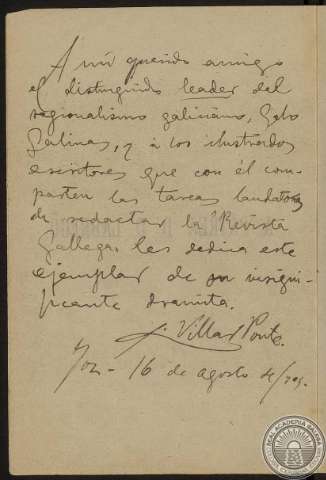 A mi querido amigo
el distinguido leader del
regionalismo galiciano, Galo
Salinas, y à los ilustrados
escritores que con él com-
parten las tareas laudatorias
de redactar la Revista
Gallega, les dedica este
ejemplar de su insigni-
ficante dramita.
A. Villar Ponte.
Foz - 16 de agosto
REAL ACADEMIA GALEGA